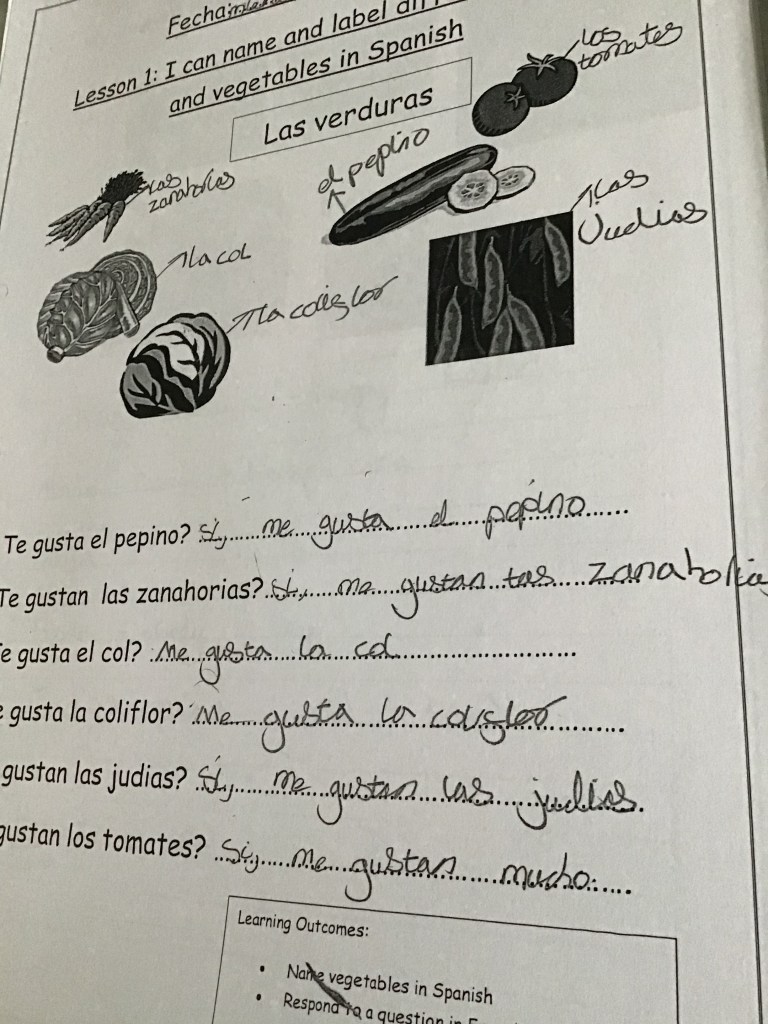 Fecha:
Lesson 1: I can name and label
and vegetables in Spanish
Las verduras
los
tomates
el pepino
las
zanahorias
las
Judias
la col
la coliflor
Te gusta el pepino? Sí, me gusta el pepino
Te gustan las zanahorias? Sí, me gustan las zanahoria
e gusta el col? Me gusta la col
gusta la coliflor? Me gusta la coliflor
gustan las judias? Sí, me gustan las judias.
gustan los tomates? Sí, me gustan mucho.
Learning Outcomes:
• Name vegetables in Spanish
• Respond to a question in